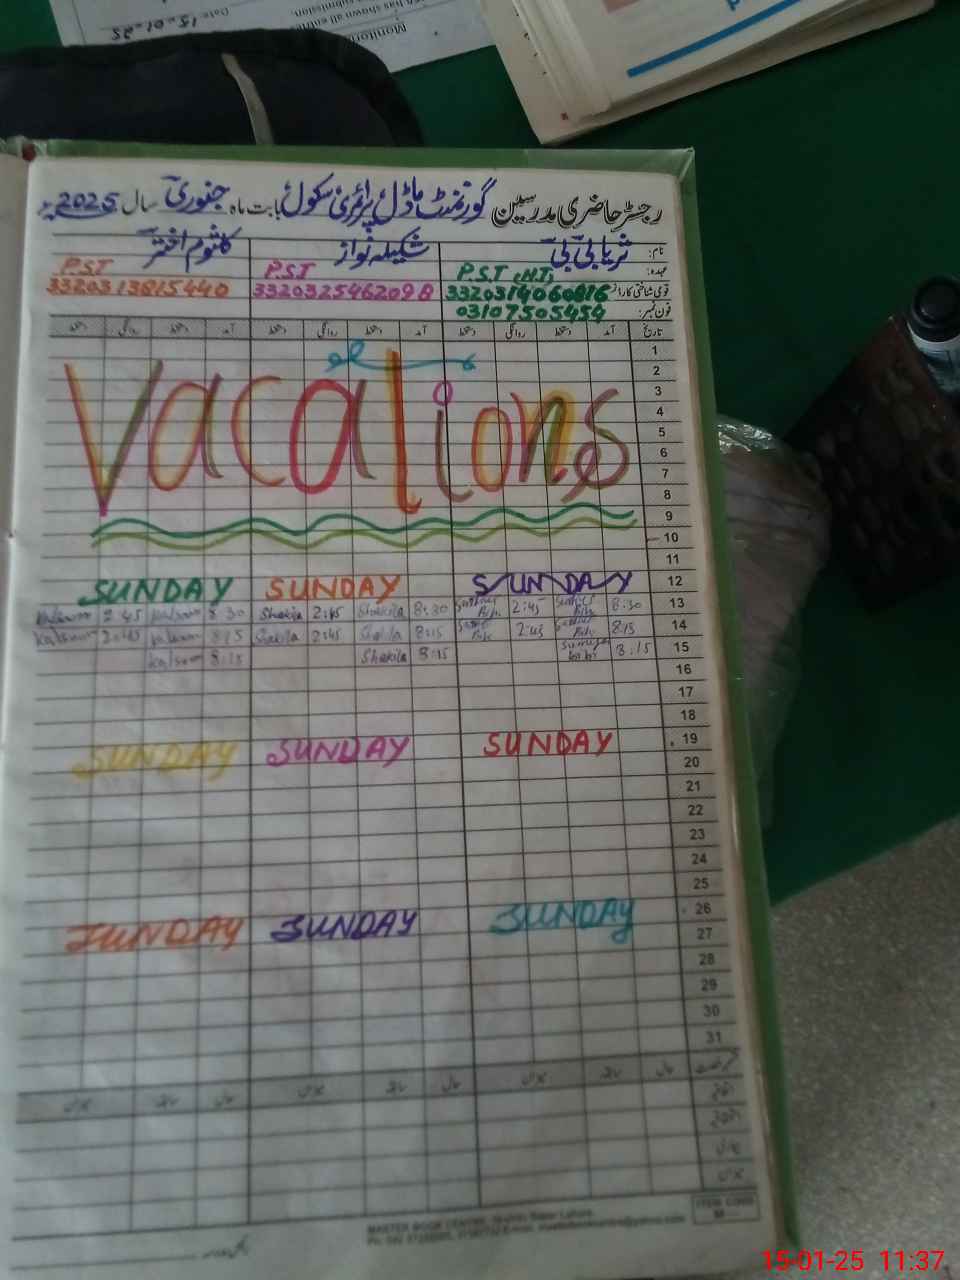 15-01-25
Date
Monitoring
has shown all
submission.
رجسٹر حاضری مدرسین گورنمنٹ ماڈل پرائمری سکول بابت ماہ جنوری سال 2025
نام: ثریا بی بی شکیلہ نواز کلثوم اختر
عہدہ: P.S.T ,H.T, P.S.T P.S.T
قومی شناختی کارڈ 3320314060816 3320325462098 3320313815440
فون نمبر: 03107505454
تاریخ آمد دستخط روانگی دستخط آمد دستخط روانگی دستخط آمد دستخط روانگی دستخط
1
2
3
Vacations
4
5
6
7
8
9
10
11
SUNDAY SUNDAY SUNDAY 12
Kalsoom 2:45 Kalsoom 8:30 Shakila 2:45 Shakila 8:30 2:45 8:30 13
Kalsoom 2:45 Kalsoom 8:15 Shakila 2:45 Shakila 8:15 2:45 8:15 14
Kalsoom 8:15 Shakila 8:15 8:15 15
16
17
18
SUNDAY SUNDAY SUNDAY 19
20
21
22
23
24
25
SUNDAY SUNDAY SUNDAY 26
27
28
29
30
31
ITEM CODE
MASTER BOOK CENTRE
15-01-25 11:37